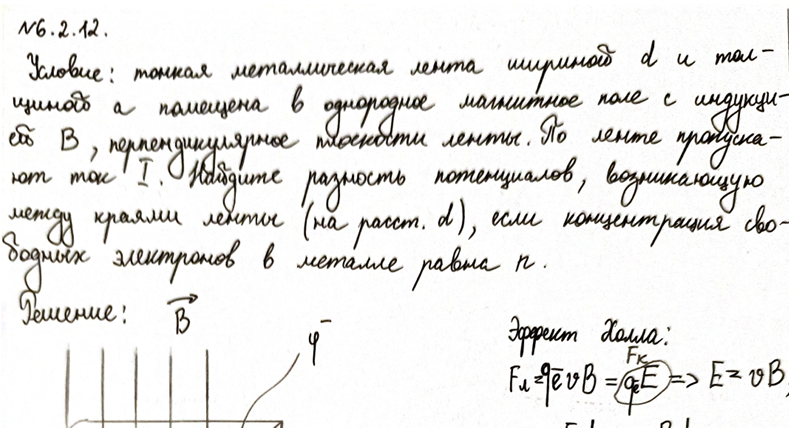 N6.2.12.
Условие: тонкая металлическая лента шириной d и тол-
щиной a помещена в однородное магнитное поле с индукци-
ей B, перпендикулярное плоскости ленты. По ленте пропуска-
ют ток I. Найдите разность потенциалов, возникающую
между краями ленты (на расст. d), если концентрация сво-
бодных электронов в металле равна n.
Решение: B
φ⁻
Эффект Холла:
Fк
Fл = qē v B = qē E => E = vB,